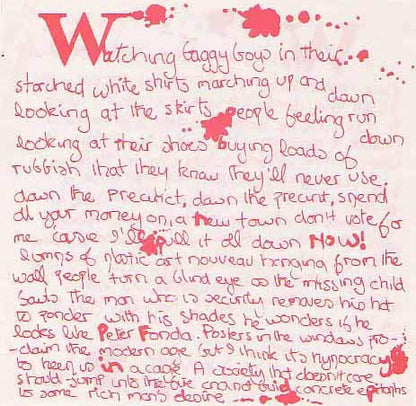 Watching Gaggy Goys in their
starched white shirts marching up and down
looking at the skirts people feeling run down
looking at their shoes buying loads of
rubbish that they know they'll never use.
down the precinct, down the precint, spend
all your money on, a new town don't vote for
me cause I'll pull it all down NOW!
lumps of plastic art nouveau hanging from the
wall people turn a blind eye as the missing child
bawls the man who is security removes his hat
to ponder with his shades he wonders is he
looks like Peter Fonda. Posters in the windows pro-
-claim the modern age but I think it's hypocracy
to keep us in a cage. A society that doesn't care
should jump into the and not build concrete epitaphs
to some rich man's desire